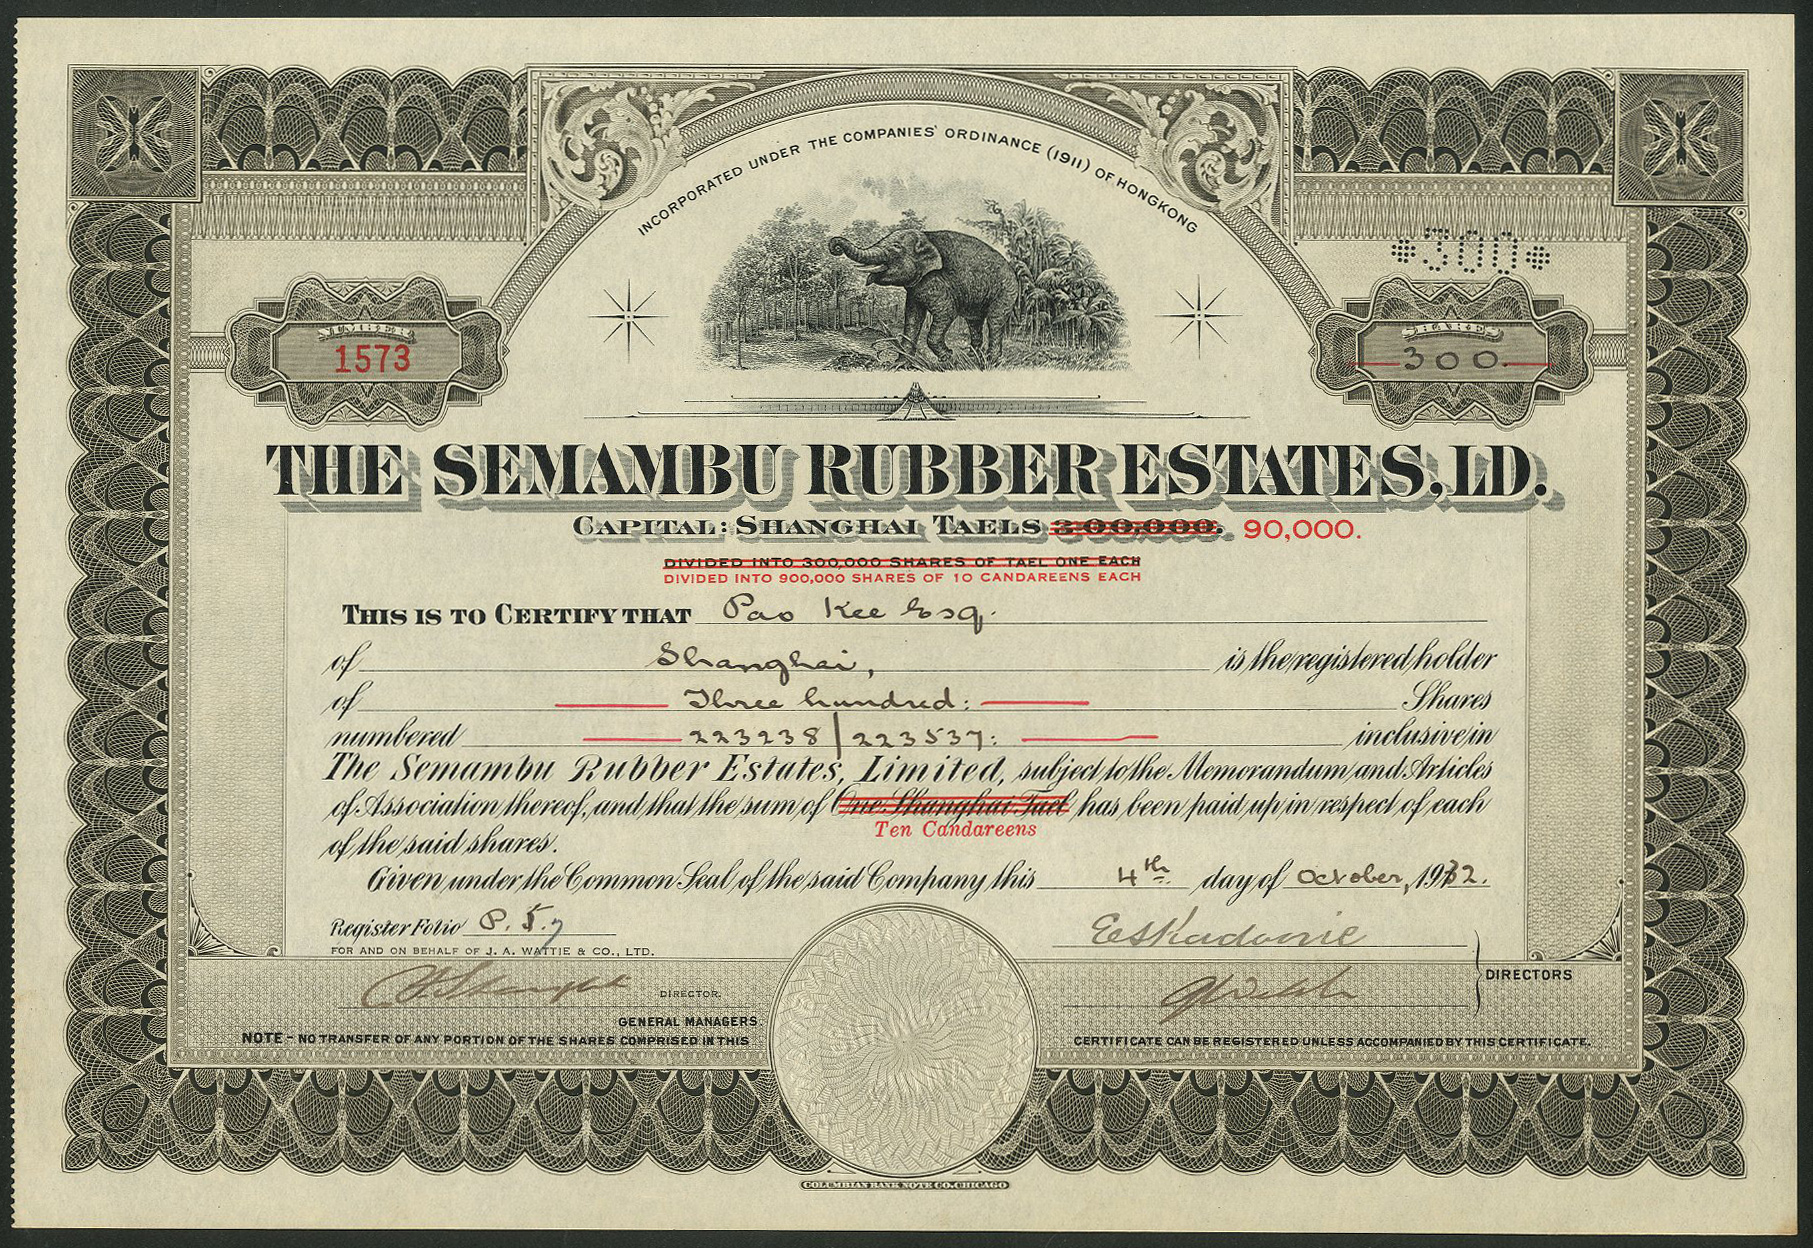 INCORPORATED UNDER THE COMPANIES' ORDINANCE (1911) OF HONGKONG
*300*
NUMBER
1573
SHARES
300.
THE SEMAMBU RUBBER ESTATES, LD.
CAPITAL: SHANGHAI TAELS 300,000. 90,000.
DIVIDED INTO 300,000 SHARES OF TAEL ONE EACH
DIVIDED INTO 900,000 SHARES OF 10 CANDAREENS EACH
THIS IS TO CERTIFY THAT Pao Kee Esq.
of Shanghai, is the registered holder
of Three hundred: Shares
numbered 223238/223537: inclusive in
The Semambu Rubber Estates, Limited, subject to the Memorandum and Articles
of Association thereof, and that the sum of One Shanghai Tael has been paid up in respect of each
Ten Candareens
of the said shares.
Given under the Common Seal of the said Company this 4th day of October, 1932.
Register Folio P. 57
FOR AND ON BEHALF OF J. A. WATTIE & CO., LTD.
DIRECTOR.
GENERAL MANAGERS.
EsKadoorie
DIRECTORS
NOTE - NO TRANSFER OF ANY PORTION OF THE SHARES COMPRISED IN THIS CERTIFICATE CAN BE REGISTERED UNLESS ACCOMPANIED BY THIS CERTIFICATE.
COLUMBIAN BANK NOTE CO. CHICAGO